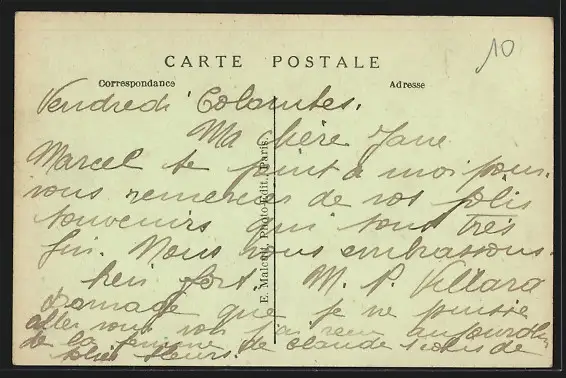 CARTE POSTALE
Correspondance
Adresse
10
Vendredi Colombes.
Ma chère Jane
Marcel se joint à moi pour
vous remercier de vos jolis
souvenirs qui sont très
fin. Nous vous embrassons
bien fort. M. P. Villard
Domage que je ne puisse
aller vous voir j'ai reçu aujourd'hui
de la femme de claude de
jolies fleurs.
E. Malcuit, Photo-Edit., Paris.